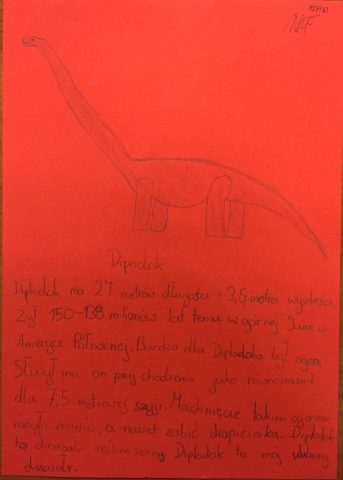 ADAM
Dipodok
Diplodok ma 27 metrów długości i 3,5 metra wysokości.
Żył 150-138 milionów lat temu w górnej Jurze w
Ameryce Północnej. Bardzo dla Diplodoka był ogon.
Służył mu on przy chodzeniu jako równoważnik
dla 7,5 metrowej szyji. Machnięcie takim ogonem
mogło zranić, a nawet zabić drapieżnika. Diplodok
to dinozałr roślinożerny. Diplodok to mój ulubiony
dinozałr.